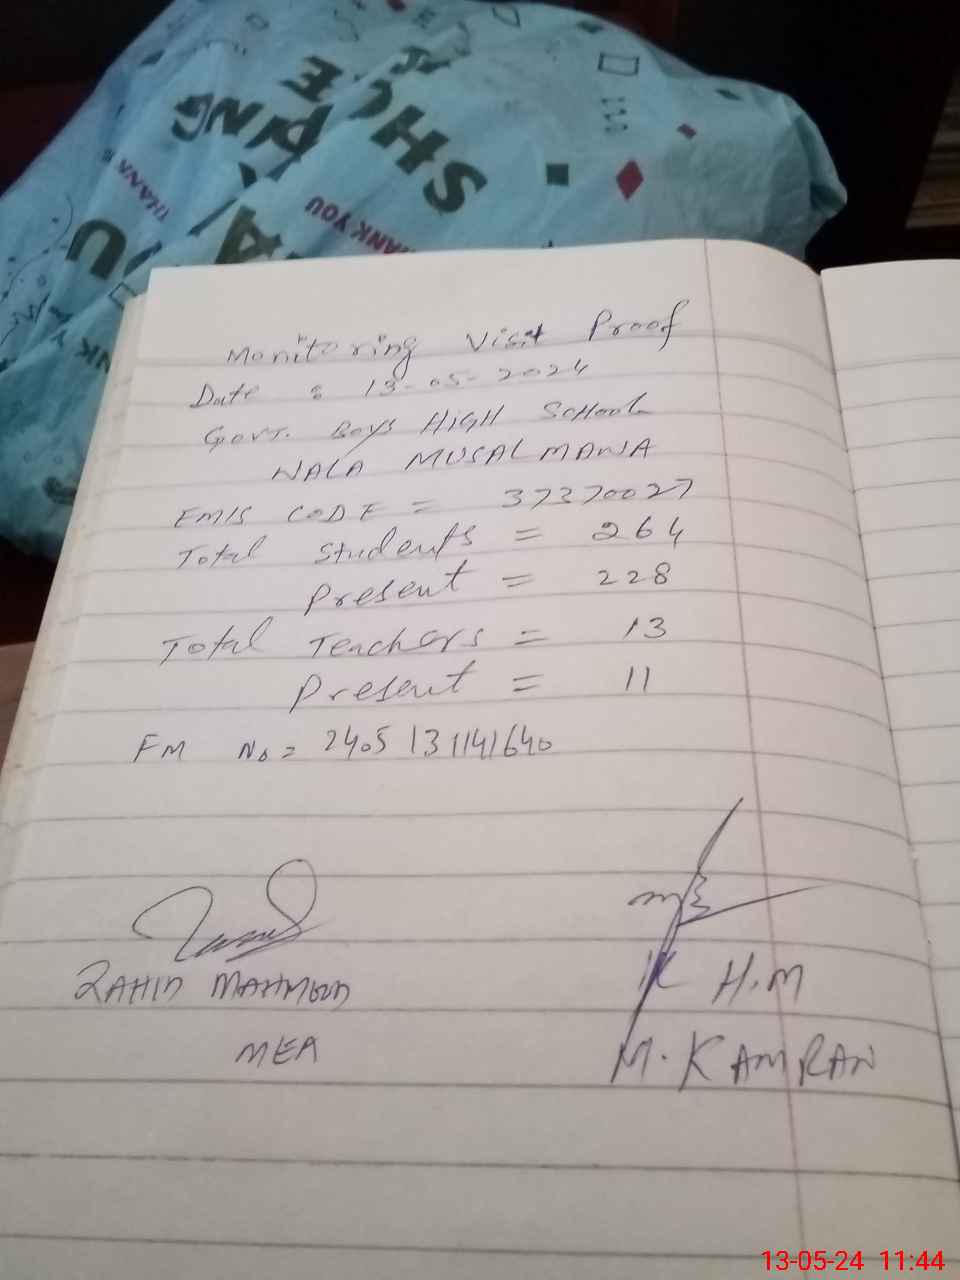 SHC
PING
CE
U
THANK YOU
THANK
Monitoring Visit Proof
Date : 13-05-2024
Govt. Boys HIGH SCHOOL
NALA MUSALMANA
EMIS CODE = 37370027
Total Students = 264
Present = 228
Total Teachers = 13
Present = 11
FM No = 2405131141640
ZAHID MAHMOOD
MEA
H.M
M. KAMRAN
13-05-24 11:44